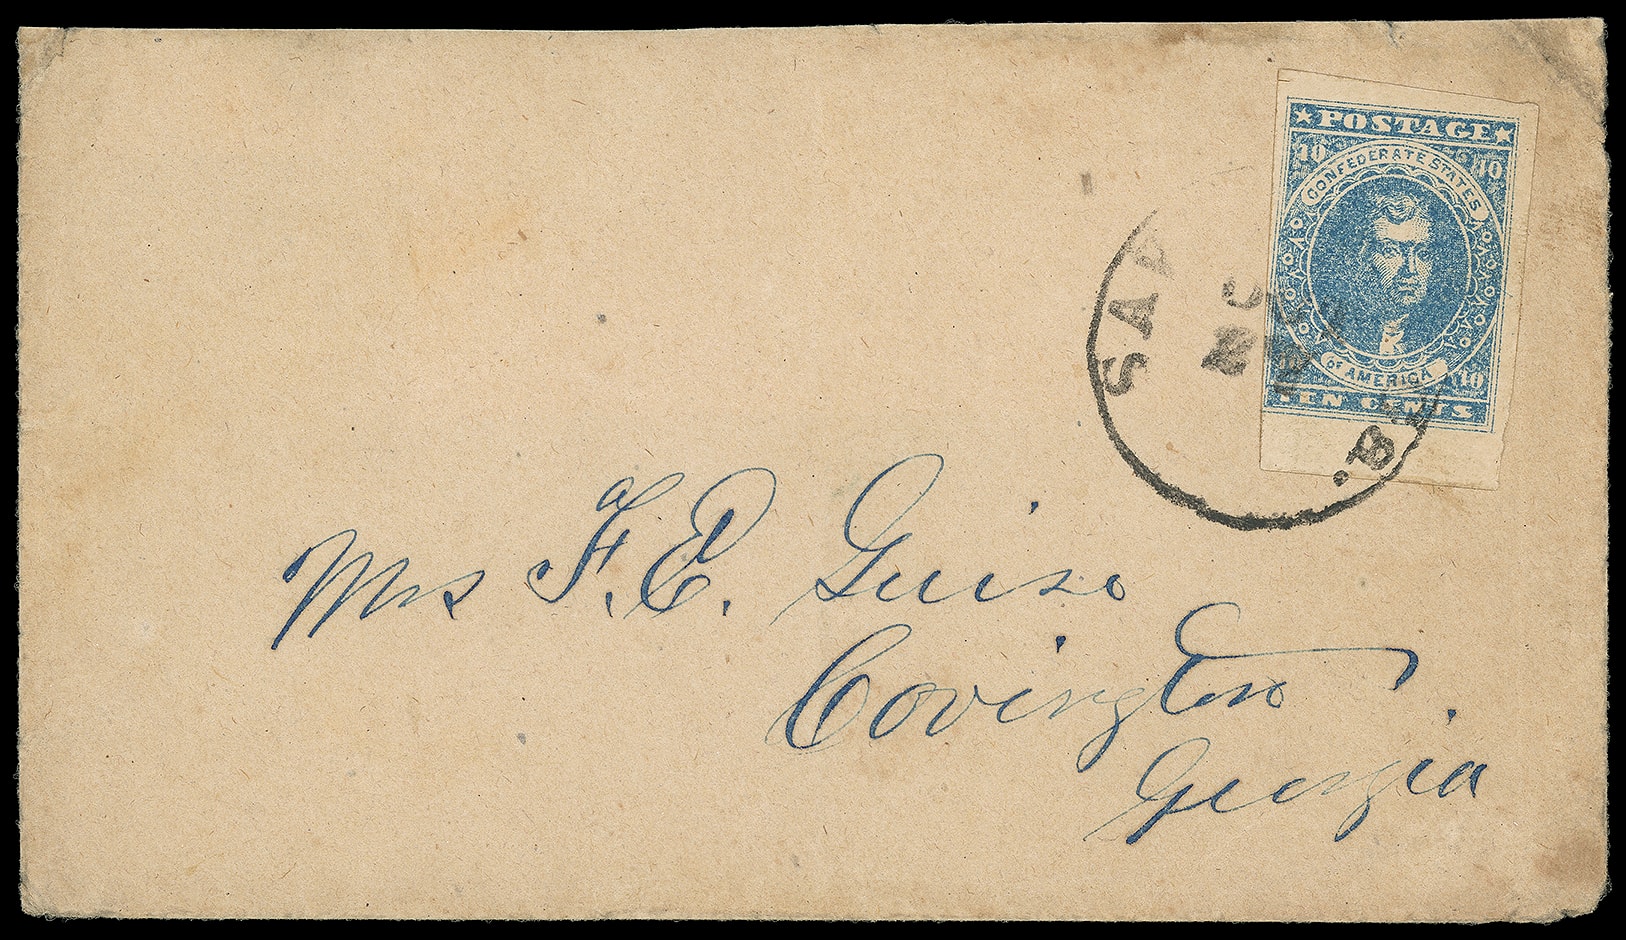 ★ POSTAGE ★
10 10
CONFEDERATE STATES
OF AMERICA
10
TEN CENTS
SAV
Mrs F. E. Guise
Covington
Georgia